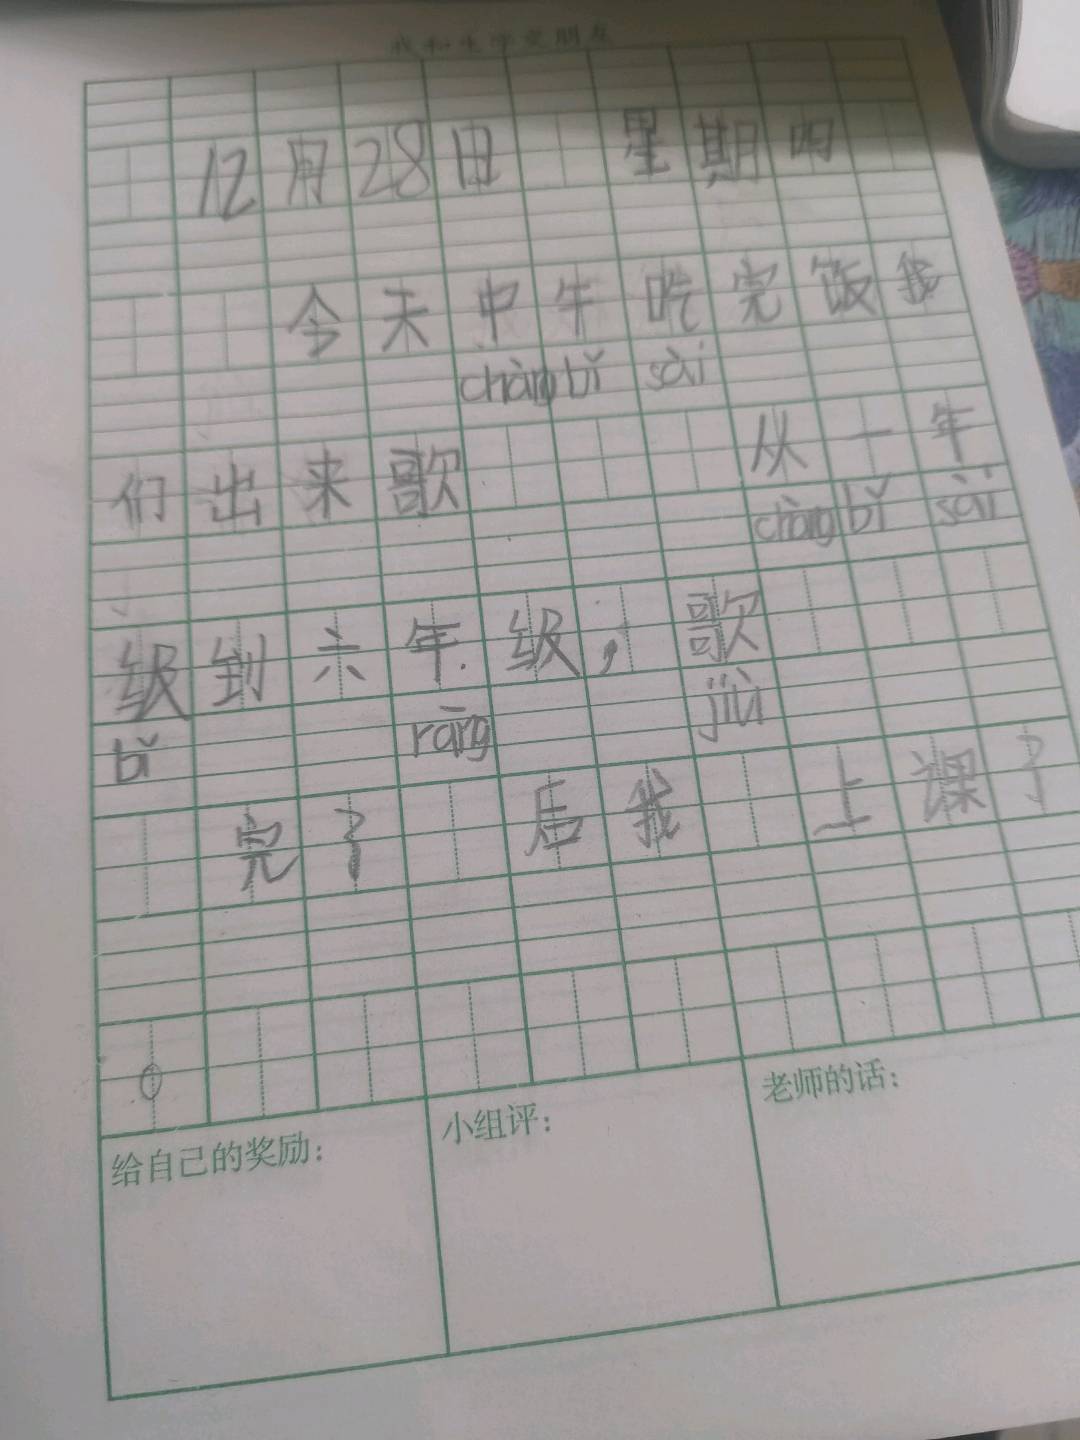 我和生字交朋友
12月28日 星期四
今天中午吃完饭我
chàng bǐ sài
们出来歌 从一年
chàng bǐ sài
级到六年级,歌
bǐ rāng jiù
完了 后我 上课了
。
给自己的奖励:
小组评:
老师的话: